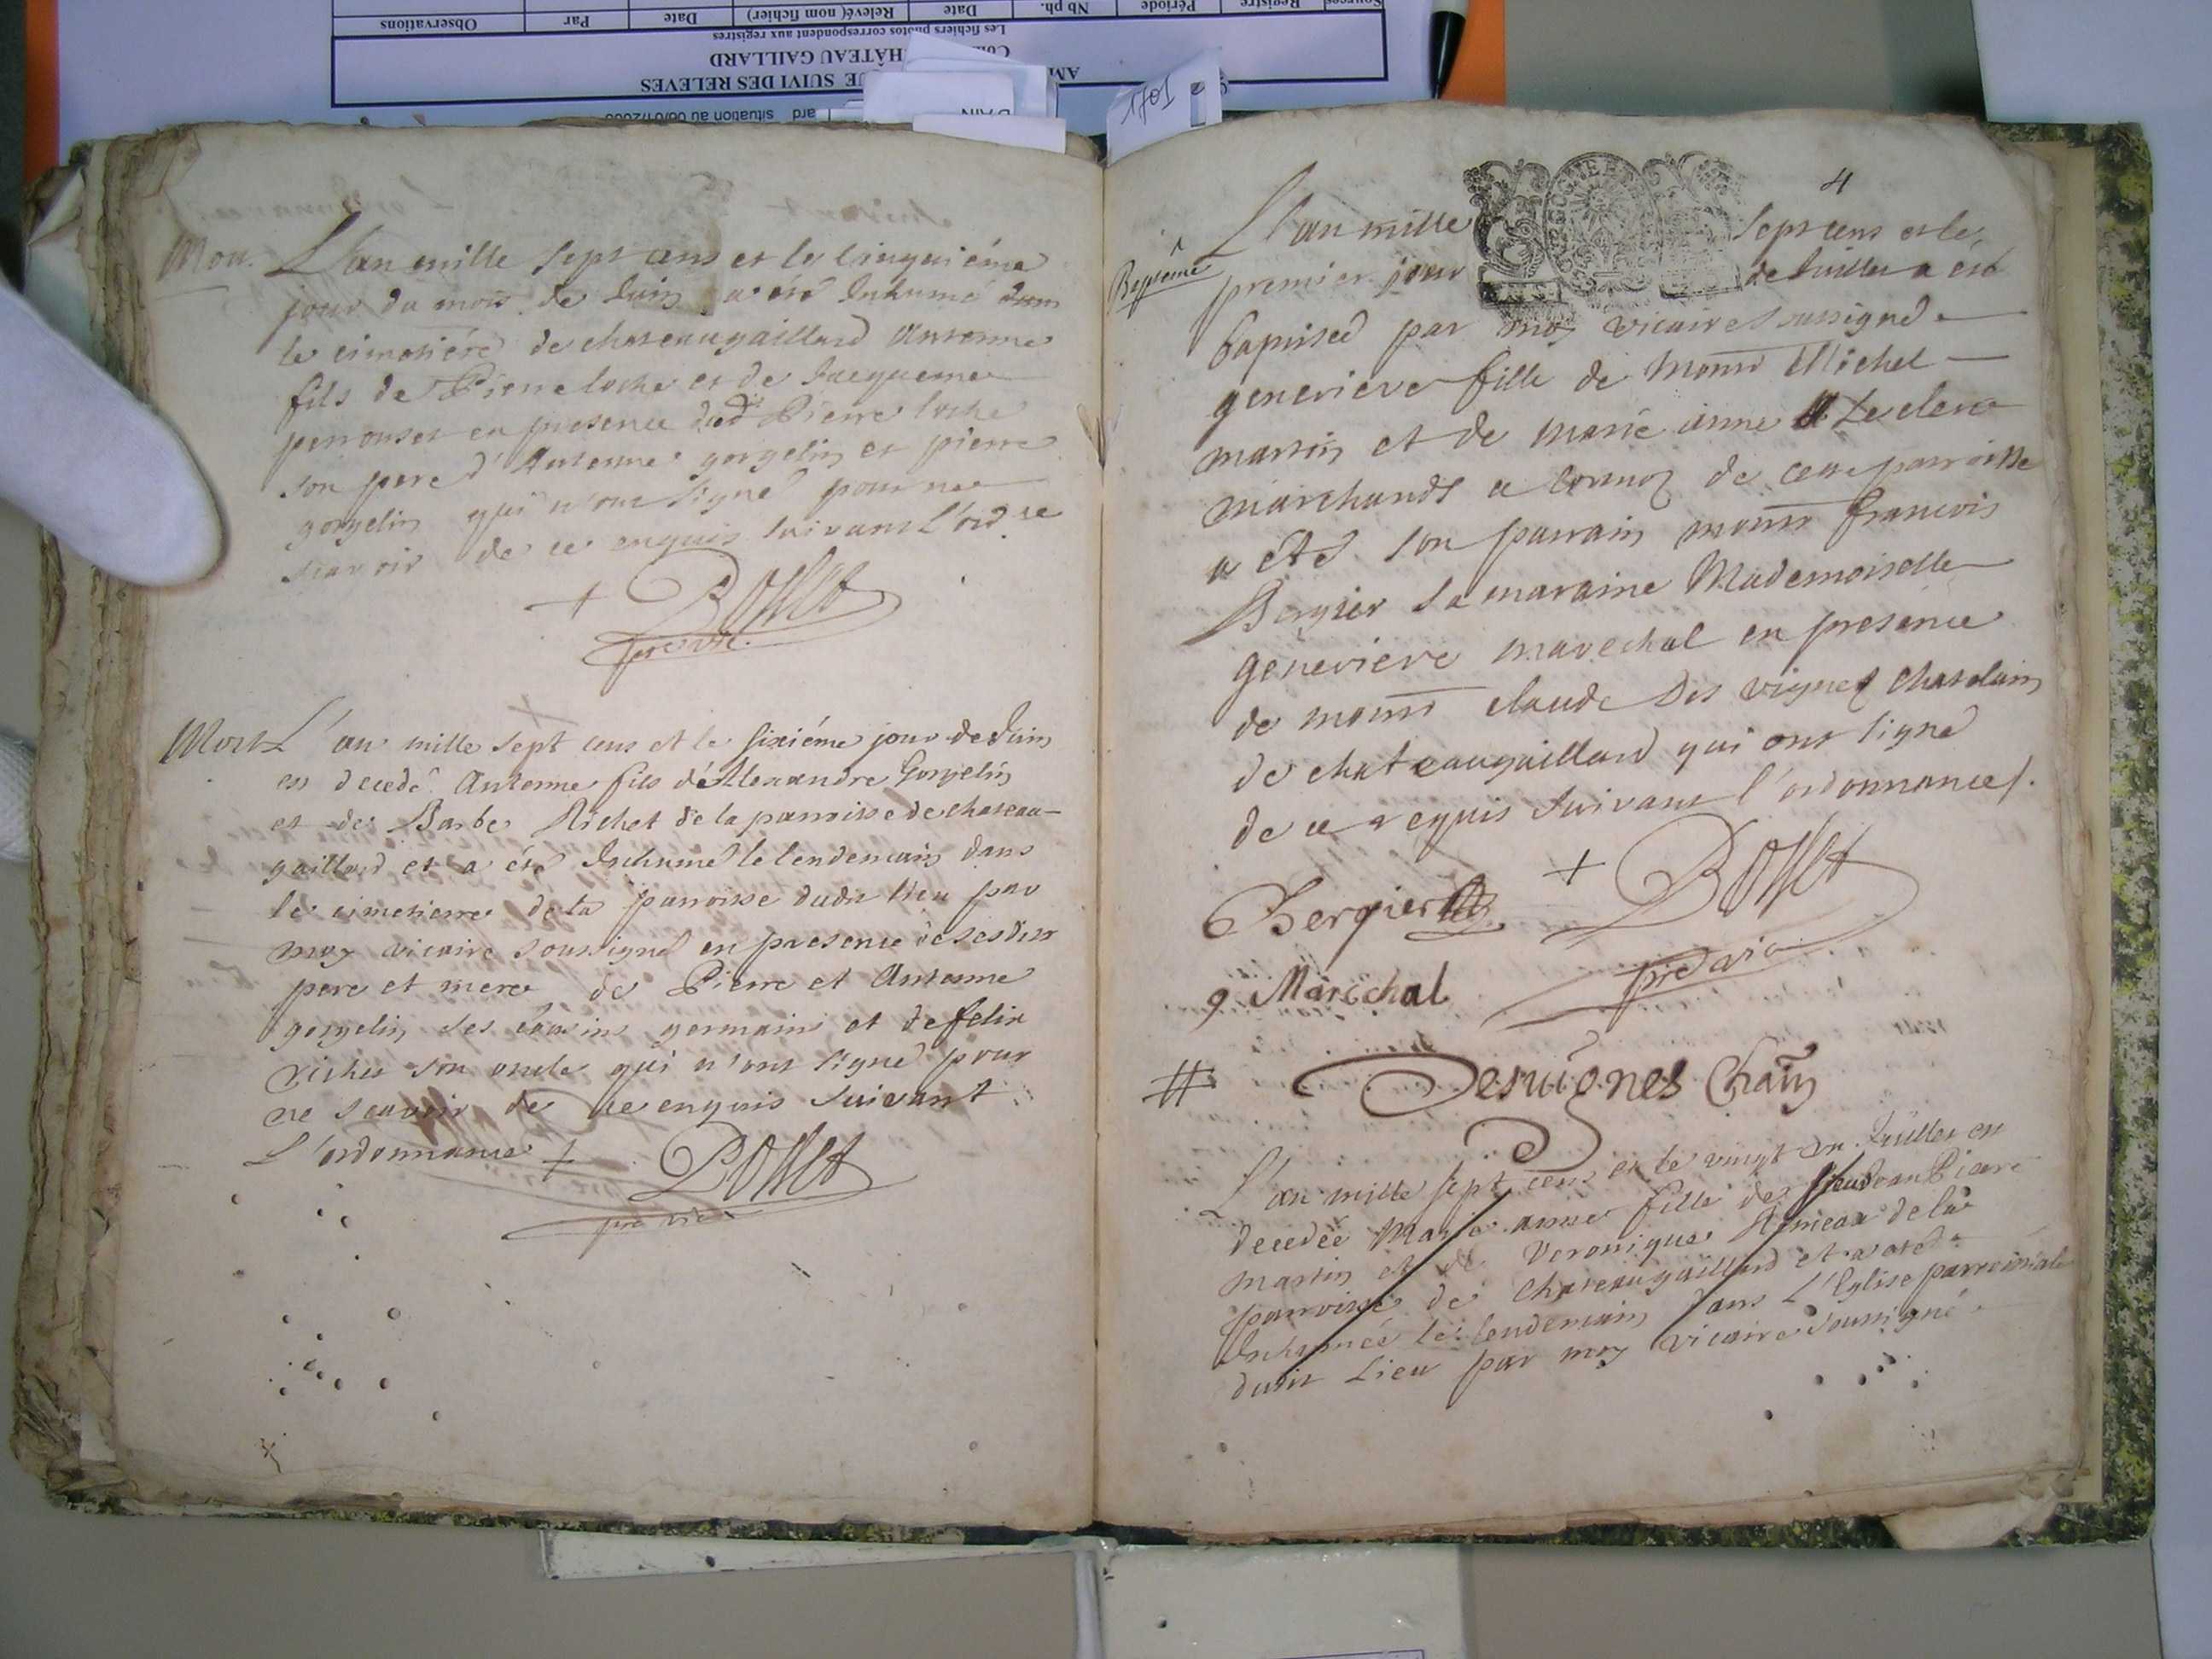 AM
UE SUIVI DES RELEVES
HÂTEAU GAILLARD
Les fichiers photos correspondent aux registres
Sources Registre Période Nb ph. Date Relevé (nom fichier) Date Par Observations
ard situation au
D'AIN
1701
Mort. L'an mille sept cens et le cinquiéme
jour du mois de Juin a été Inhumé dans
le cimetiére de chateaugaillard Antenne
fils de Pierre loche et de Jacqueme
perrouset en presence dud Pierre loche
son pere d'Antenne gorgelin et pierre
gorgelin qui n'ont signé pour ne
scavoir de ce enquis suivant l'ord.ce
+ Bosset
pre vic.
Mort L'an mille sept cens et le sixiéme jour de Juin
est decedé Antenne fils d'Alexandre Gorgelin
et de Barbe Richet de la parroisse de chateau-
gaillard et a été Inhumé le lendemain dans
le cimetierre de la parroisse dudit lieu par
moy vicaire soussigné en presence de sesdits
pere et mere de Pierre et Antenne
gorgelin ses cousins germains et de felix
richet son oncle qui n'ont signé pour
ne scavoir de ce enquis suivant
L'ordonnance + Bosset
pre vic
4
Bapteme L'an mille sept cens et le
premier jour de Juillet a esté
baptisée par moy vicaire soussigné
genevieve fille de Monsr Michel
martin et de marie anne Leclerc
marchands a cormoz de cette parroisse
a été son parrain monsr francois
Bergier sa maraine Mademoiselle
genevieve marechal en presence
de monsr claude Des vignes chatelain
de chateaugaillard qui ont signé
de ce requis suivant l'ordonnance.
Bergier + Bosset
pre vic
g Maréchal
# Desuignes Chain
L'an mille sept cens et le vingt un Juillet est
decedée Marie anne fille de sieur Jean Piere
martin et de Veronique de la
parroisse de Chateaugaillard et a oté
Inhumée le lendemain dans L'Eglise parroissiale
dudit Lieu par moy vicaire soussigné